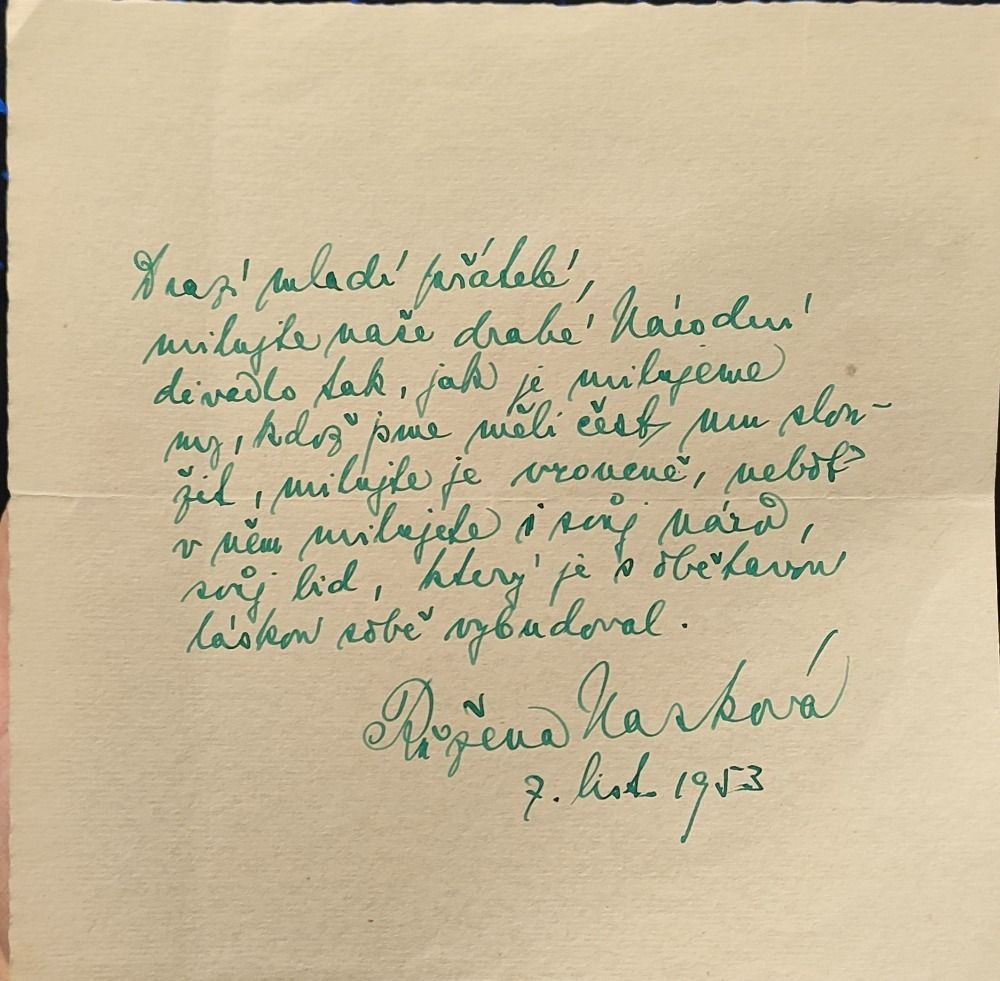 Drazí mladí přátelé,
milujte naše drahé Národní
divadlo tak, jak je milujeme
my, kdož jsme měli čest mu slou-
žit, milujte je vroucně, neboť
v něm milujete i svůj národ,
svůj lid, který je s obětavou
láskou sobě vybudoval.
Růžena Nasková
7. list. 1953